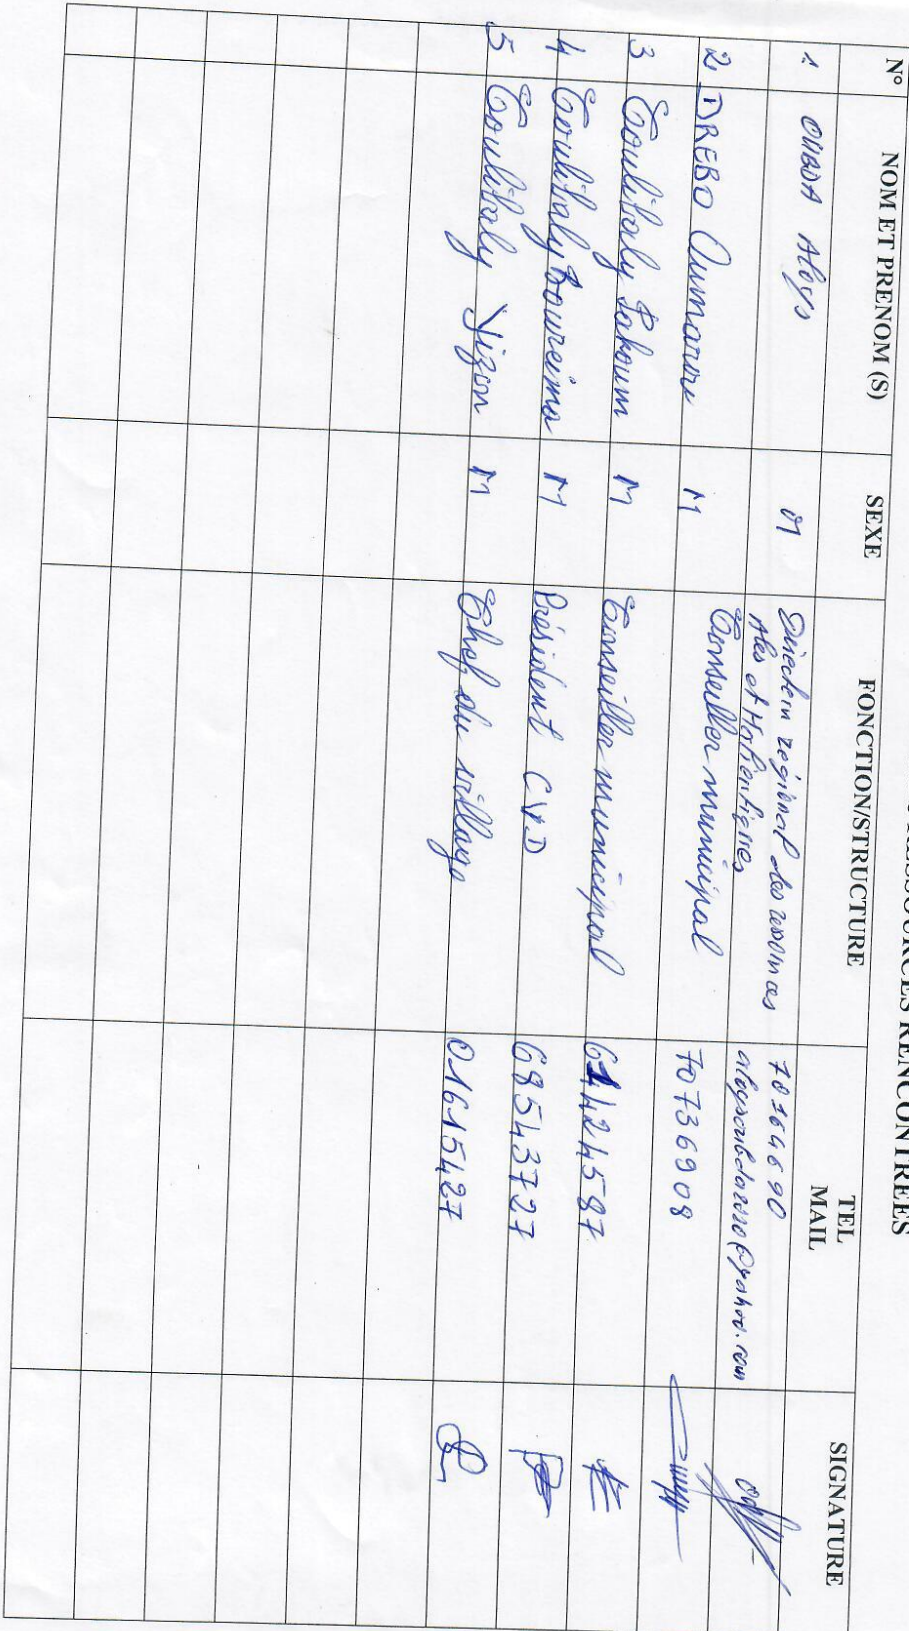 RESSOURCES RENCONTREES
N° NOM ET PRENOM (S) SEXE FONCTION/STRUCTURE TEL MAIL SIGNATURE
1 OUBDA Aloys M Directeur régional des ressources
Ales et Halieutiques
2 DREBO Oumarou M Conseiller municipal 70736908
3 Coulibaly Sakoum M Conseiller municipal
4 Coulibaly Boureima M Président CVD 68543727
5 Coulibaly M Chef du village 01615427